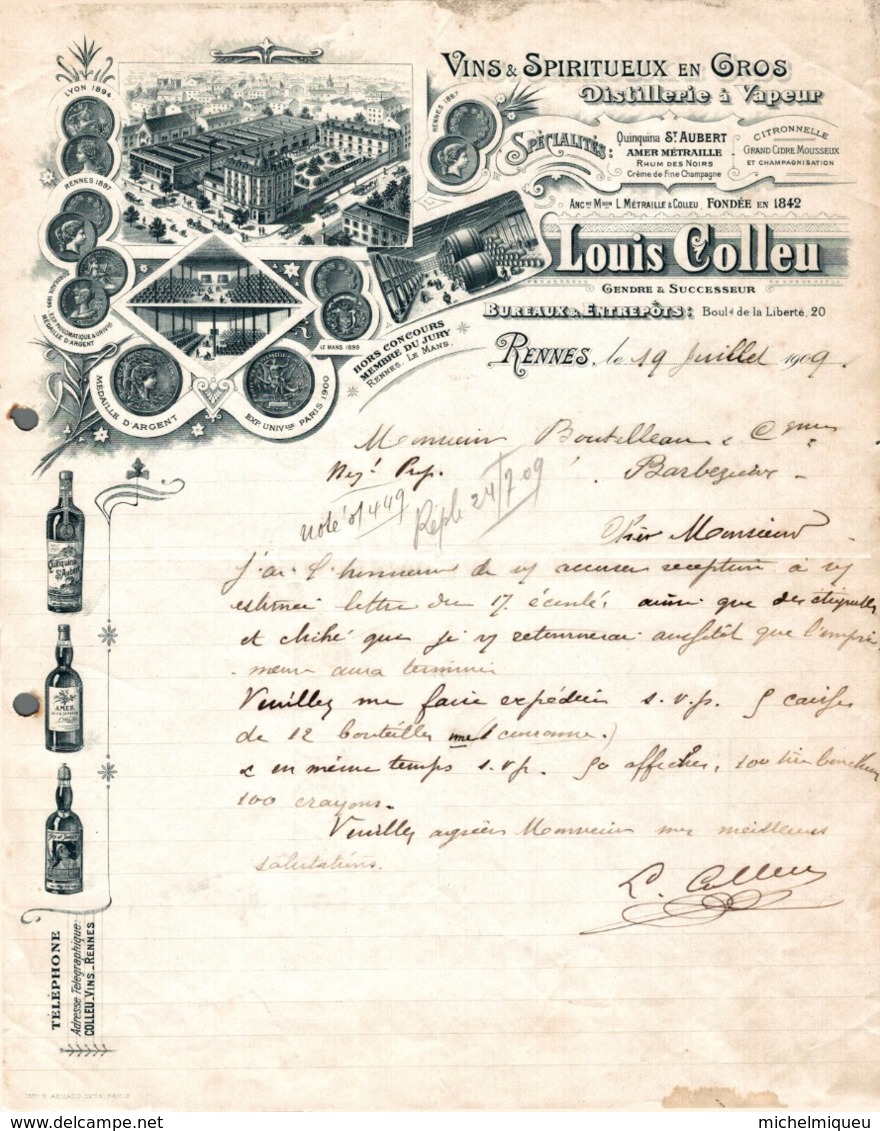 VINS & SPIRITUEUX EN GROS
Distillerie à Vapeur
SPÉCIALITÉS:
Quinquina ST AUBERT
AMER MÉTRAILLE
RHUM DES NOIRS
Crème de Fine Champagne
CITRONNELLE
GRAND CIDRE MOUSSEUX
ET CHAMPAGNISATION
ANCNE MSON L. MÉTRAILLE & COLLEU FONDÉE EN 1842
Louis Colleu
GENDRE & SUCCESSEUR
BUREAUX & ENTREPÔTS: Bould de la Liberté, 20
LYON 1894
RENNES 1897
RENNES 1887
MÉDAILLE D'ARGENT
LE MANS 1899
MÉDAILLE D'ARGENT
EXP. UNIVLLE PARIS 1900
HORS CONCOURS
MEMBRE DU JURY
RENNES. LE MANS.
RENNES, le 19 Juillet 1909.
Monsieur Boutelleau &
Barbezieux
noté 449
Réple 24/7 09
Cher Monsieur
J'ai l'honneur de vs accuser reception à vs
estimée lettre du 17 écoulé, ainsi que des étiquettes
et cliché que je vs retournerai aussitôt que l'impri
meur aura terminé
Veuillez me faire expédier s.v.p. 5 caisses
de 12 bouteilles une (1 couronne.)
& en même temps s.v.p. 50 affiches, 100 tire bouchons
100 crayons.
Veuillez agréer Monsieur mes meilleures
salutations.
L. Colleu
Quinquina
St Aubert
AMER
TÉLÉPHONE
Adresse Télégraphique:
COLLEU. VINS. RENNES
michelmiqueu